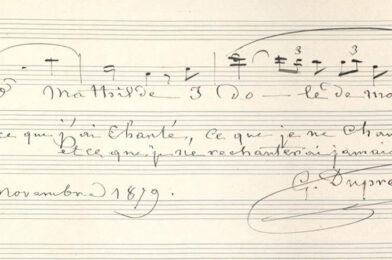 Mathilde I do - le de mo
ce que j'ai chanté, ce que je ne chan
et ce que je ne rechanterai jamais
novembre 1879.
G. Dupre